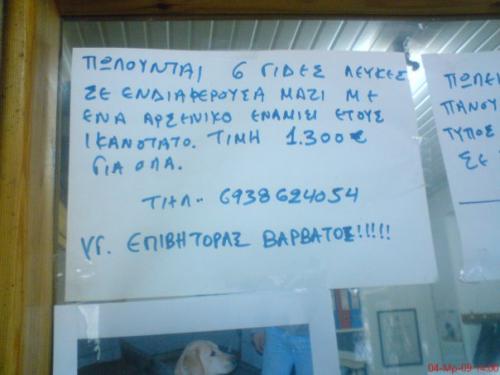 ΠΩΛΟΥΝΤΑΙ 6 ΓΙΔΕΣ ΛΕΥΚΕΣ
ΣΕ ΕΝΔΙΑΦΕΡΟΥΣΑ ΜΑΖΙ ΜΕ
ΕΝΑ ΑΡΣΕΝΙΚΟ ΕΝΑΜΙΣΙ ΕΤΟΥΣ
ΙΚΑΝΟΤΑΤΟ. ΤΙΜΗ 1.300€
ΓΙΑ ΟΛΑ.
ΤΗΛ.. 6938624054
ΥΓ. ΕΠΙΒΗΤΟΡΑΣ ΒΑΡΒΑΤΟΣ!!!!!
ΠΩΛΕΙ
ΠΑΝΟΥ
ΤΥΠΟΣ
ΣΕ
04-Μρ-09 14:00